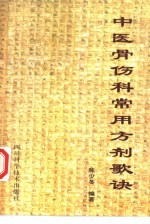 中医骨伤科常用方剂歌诀
陈少冬 编著
四川科学技术出版社